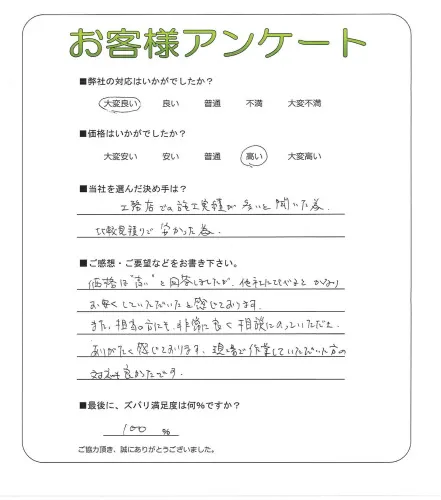 お客様アンケート
■弊社の対応はいかがでしたか？
大変良い 良い 普通 不満 大変不満
■価格はいかがでしたか？
大変安い 安い 普通 高い 大変高い
■当社を選んだ決め手は？
工務店での施工実績が多いと聞いた為。
比較見積りで分かった為。
■ご感想・ご要望などをお書き下さい。
価格は"高い"と回答しましたが、他社とくらべるとかなり
お安くしていただいたと感じております。
また、担当の方にも、非常に良く相談にのっていただき、
ありがたく感じております。現場で作業していただいた方の
対応も良かったです。
■最後に、ズバリ満足度は何％ですか？
100 %
ご協力頂き、誠にありがとうございました。